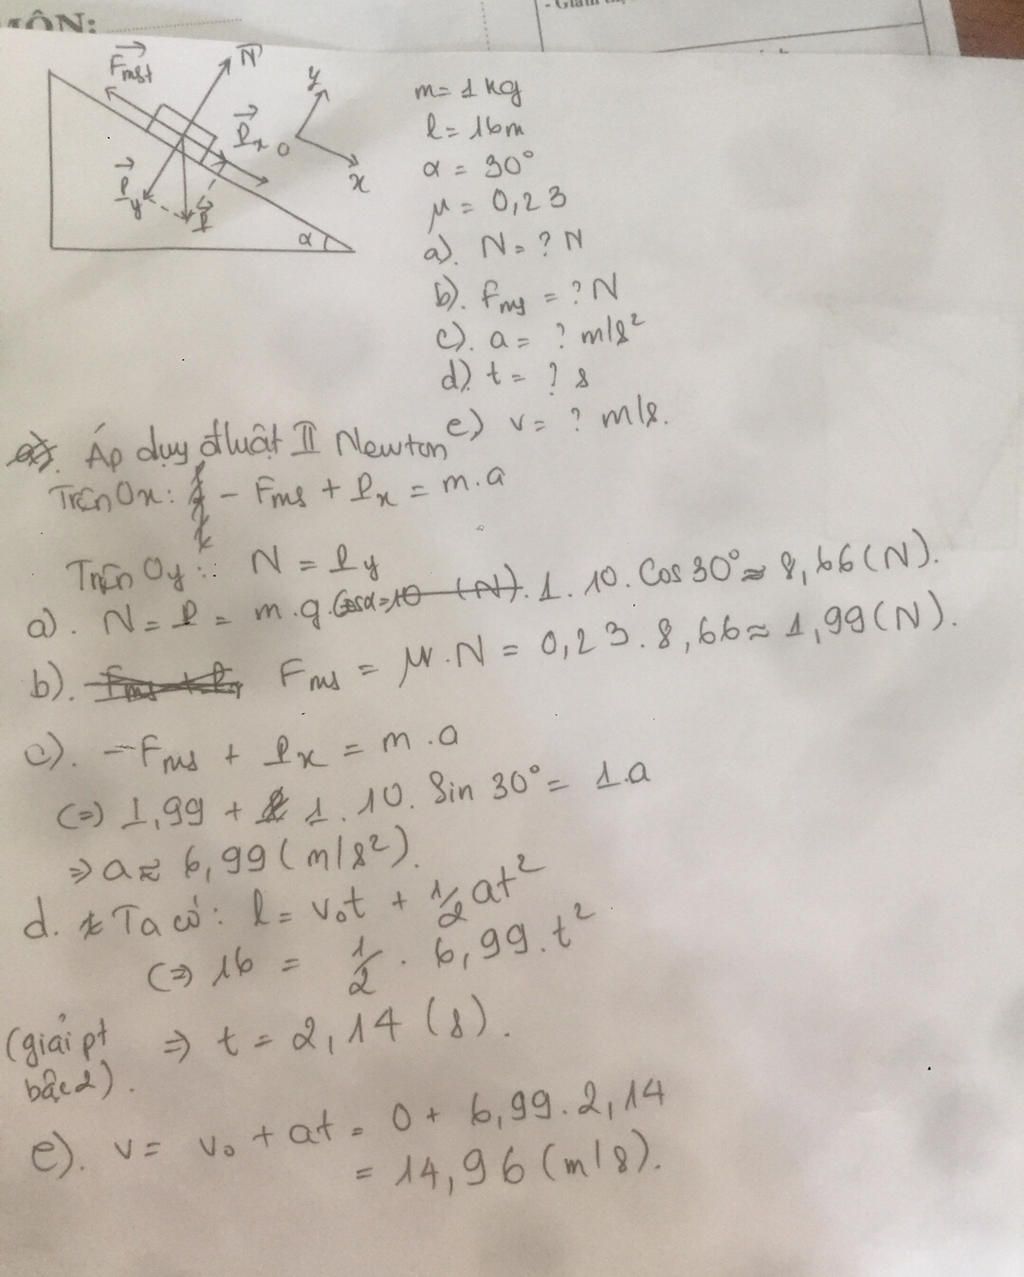 MÔN:
Fmst
N
y
Px
O
x
Py
P
α
m = 1 kg
l = 16m
α = 30°
μ = 0,23
a). N = ? N
b). Fms = ? N
c). a = ? m/s²
d). t = ? s
e) v = ? m/s.
a). Áp dụg đluật II Newton
Trên Ox: - Fms + Px = m.a
Trên Oy: N = Py
a). N = P = m.g.cosα = 10 (N). 1.10.Cos30° ≈ 8,66(N).
b). Fms + Px Fms = μ.N = 0,23.8,66 ≈ 1,99(N).
c). -Fms + Px = m.a
(=) 1,99 + 1.10.Sin30° = 1.a
=> a ≈ 6,99(m/s²).
d. Ta có: l = v₀t + 1/2 at²
(=) 16 = 1/2 . 6,99.t²
(giải pt bậc2). => t = 2,14 (s).
e). v = v₀ + at = 0 + 6,99.2,14
= 14,96 (m/s).